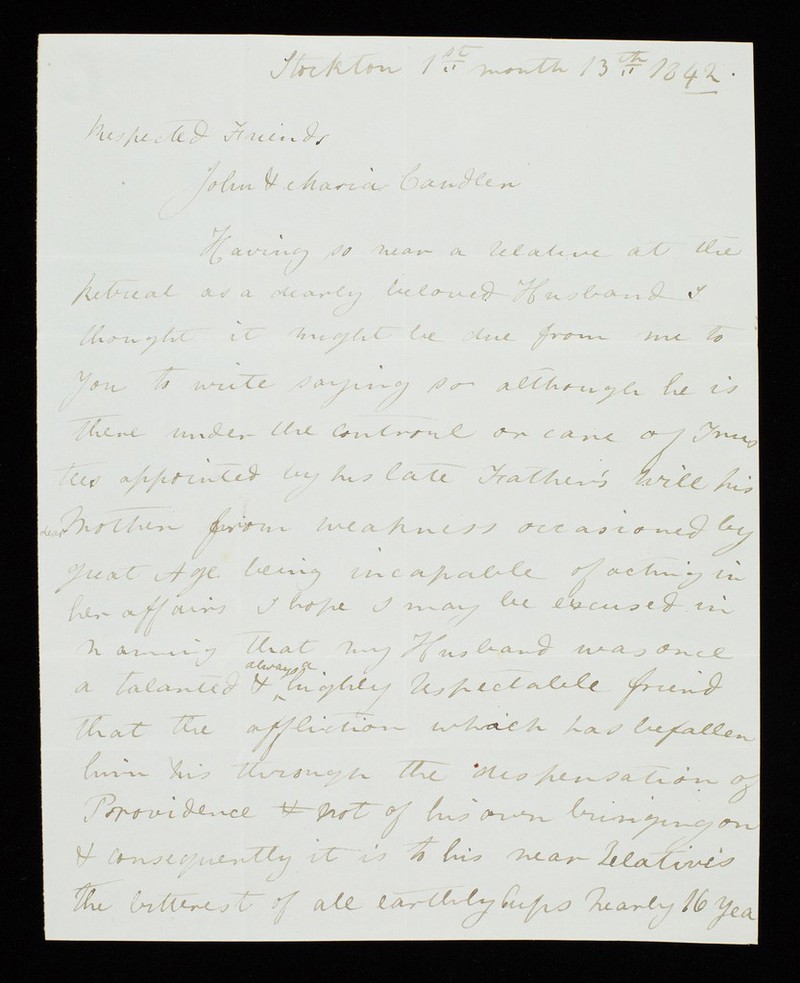 Stockton 1st month 13th 1842.
Respected Friends
John & Maria Candler
Having so near a relative at the
Retreat as a dearly beloved Husband I
thought it might be due from me to
You to write saying so although he is
there under the controul or care of Trus
tees appointed by his late Father's Will his
dear Mother from weakness occasioned by
great Age being incapable of acting in
her affairs I hope I may be excused in
naming that my Husband was once
always a
a talanted & highly respectable friend
that the affliction which has befallen
him his through the dispensation of
Providence & not of his own bringing on
& consequently it is to his near Relative's
the bitterest of all earthly Cups Nearly 16 yea